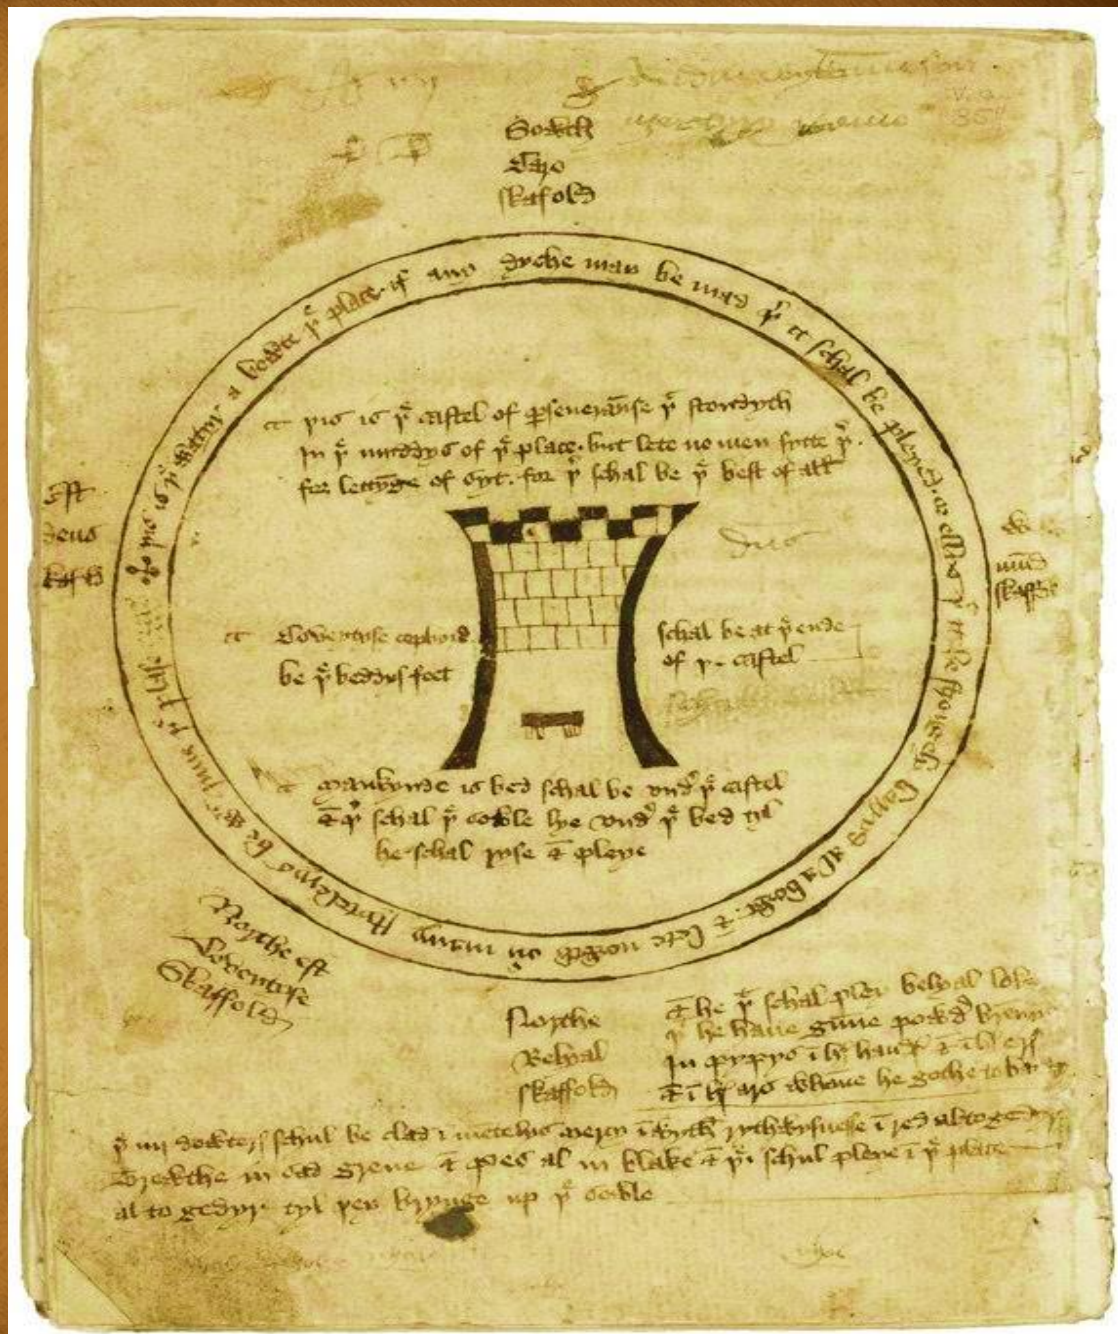 Sowth
Caro
skafold
þis is þe watyr a bowte þe place. if any dyche may be mad þer it schal be pleyed. or ellys þt it be strongely barryd al a bowt. & lete nowth ouyr many stytelerys be wt inne þe plase
þis is þe castel of perseueraunse þt stondyth
In þe myddys of þe place. but lete no men sytte þer.
for lettynge of syt. for þer schal be þe best of all
Est
deus
skafold
w
mund
skaffold
dns
Coveytyse copbord
be þe beddys feet
schal be at þe ende
of þe castel
Mankynde is bed schal be vndyr þe castel
& þer schal þe sowle lye vndyr þe bed tyl
he schal ryse & pleye
Northe est
Coveytyse
Skaffold
Northe
Belyal
skaffold
& he þt schal pley belyal loke
þt he haue gunne powdyr brennyng
In pypys i hys handys & i hys erys
& i hys ars whanne he gothe to
þe iiij dowterys schul be clad i mentelys mercy i wyth rythwysnesse i red altogedyr
Trewthe in sad grene & pes al in blake & þei schul pleye i þe place
al to gedyr tyl þey brynge up þe sowle